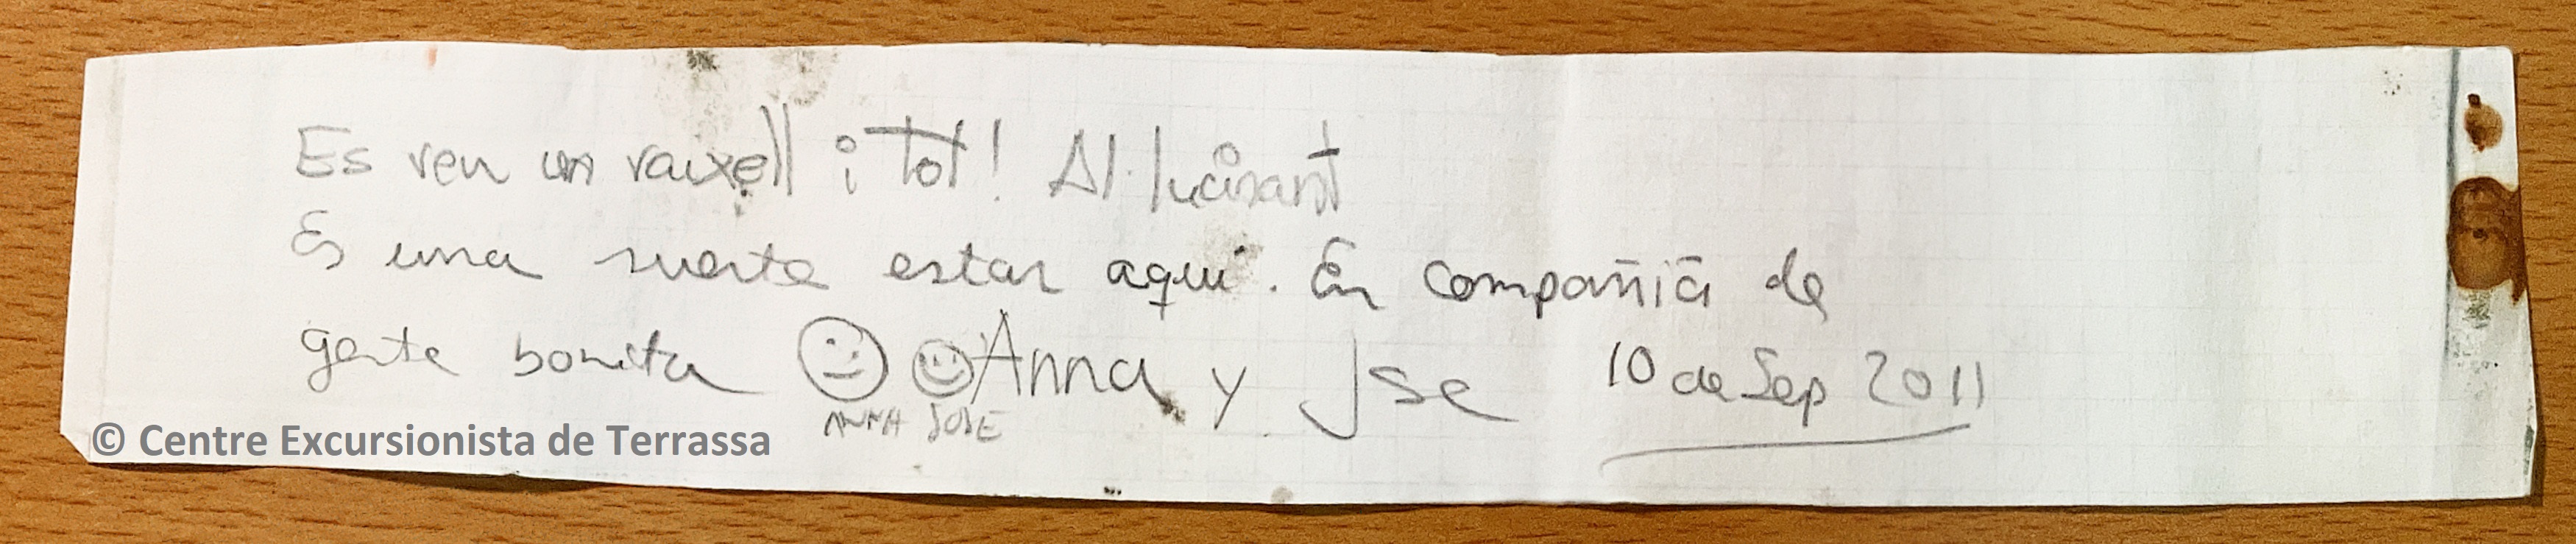 Es veu un vaixell i tot! Al·lucinant
Es una suerte estar aqui. En compañia de
gente bonita Anna y Jse 10 de Sep 2011
ANNA JOSE
© Centre Excursionista de Terrassa